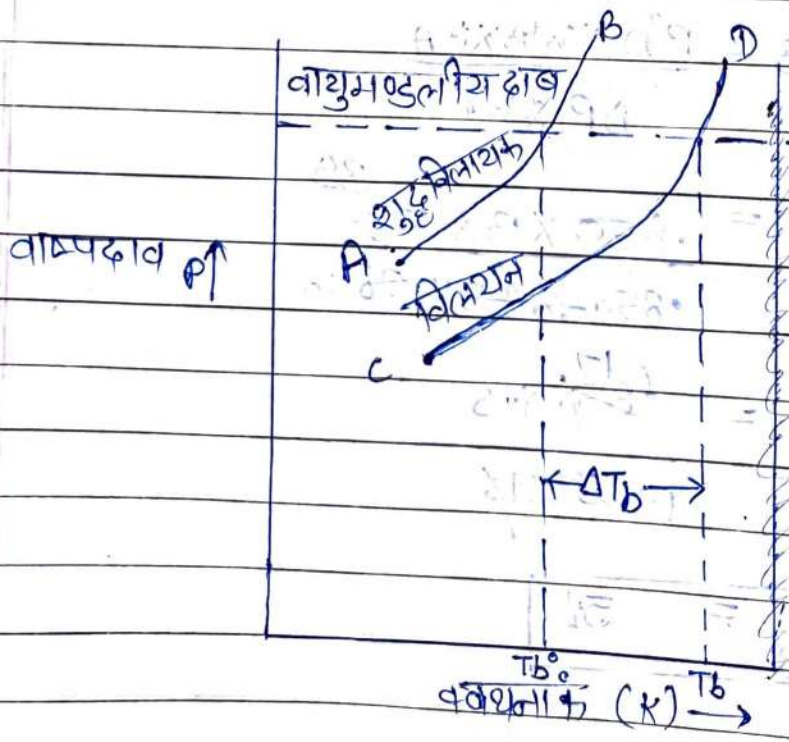 B
D
वायुमण्डलीय दाब
शुद्ध विलायक
वाष्पदाव P↑
A
विलयन
C
←ΔTb→
Tb°
Tb
क्वथनांक (K) →